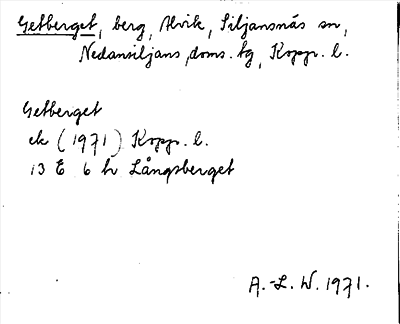 Getberget, berg, Alvik, Siljansnäs sn,
Nedansiljans doms. tg, Kopp. l.
Getberget
ek (1971) Kopp. l.
13 E 6 h Långsberget
A.-L. W. 1971.